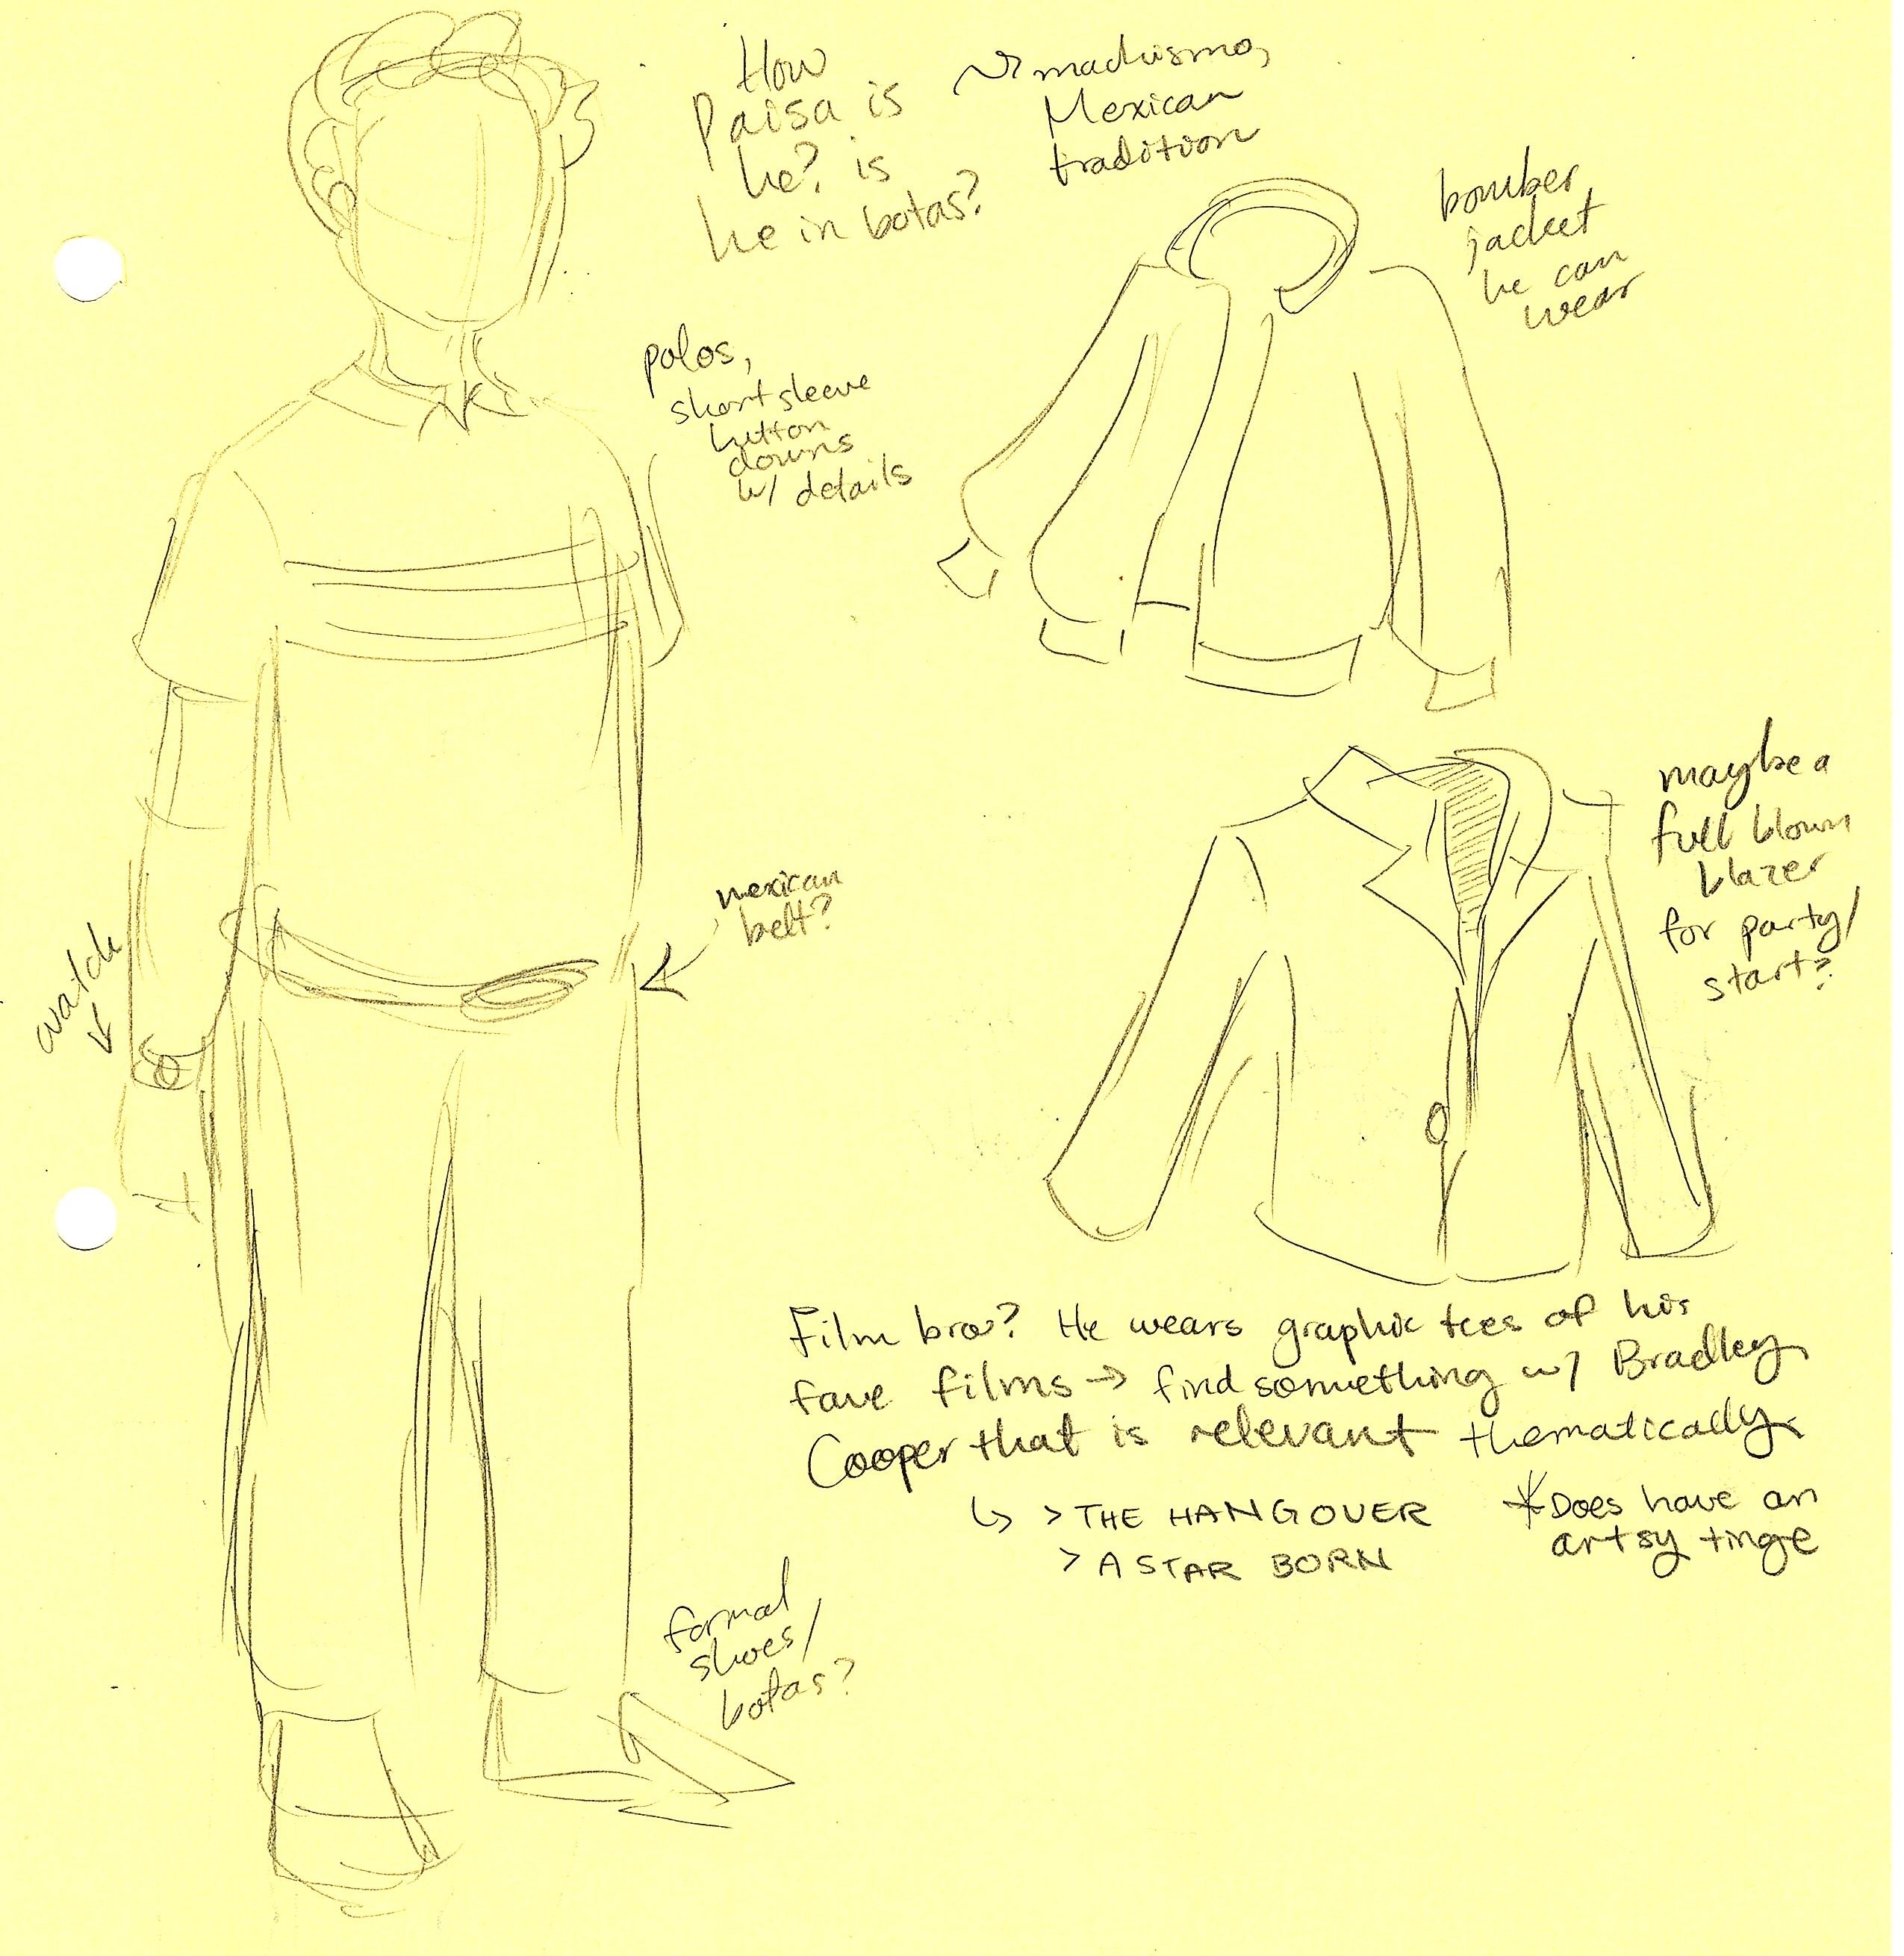 How
Paisa is
he? is
he in botas?
machismo,
Mexican
tradition
bomber
jacket
he can
wear
polos,
short sleeve
button
downs
w/ details
maybe a
full blown
blazer
for party/
start?
mexican
belt?
watch
Film bro? He wears graphic tees of his
fave films → find something w/ Bradley
Cooper that is relevant thematically
↳ > THE HANGOVER
> A STAR BORN
*Does have an
artsy tinge
formal
shoes/
botas?